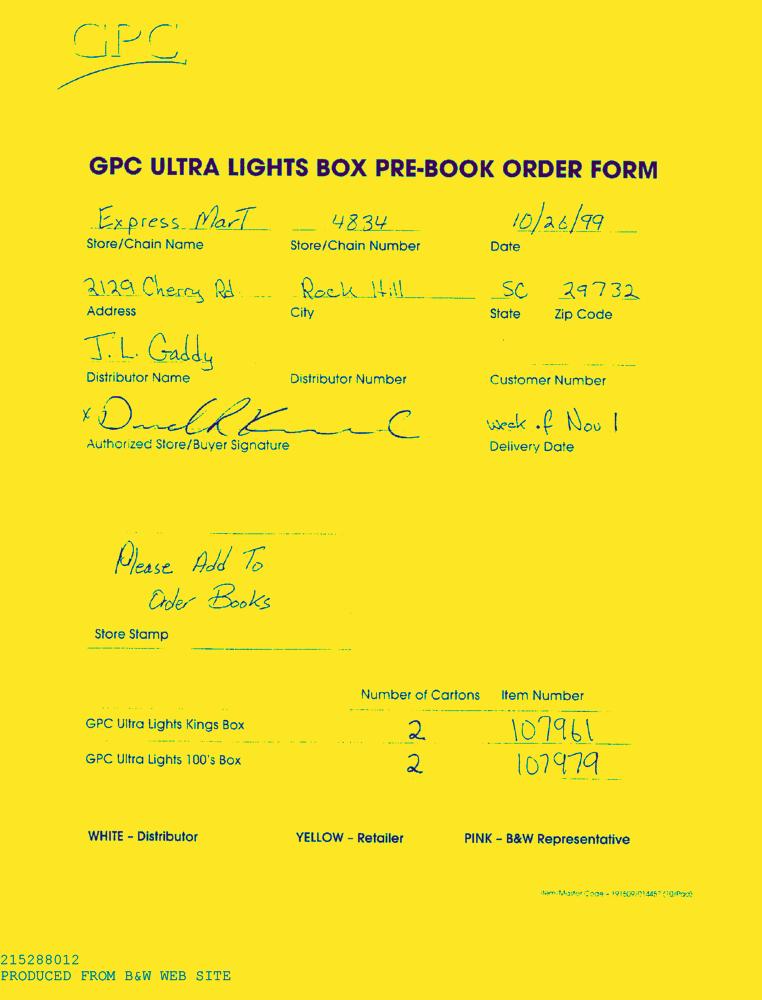 GPC
GPC ULTRA LIGHTS BOX PRE-BOOK ORDER FORM
Express Mart 4834 10/26/99
Store/Chain Name Store/Chain Number Date
2129 Cherry Rd Rock Hill SC 29732
Address City State Zip Code
J. L. Gaddy
Distributor Name Distributor Number Customer Number
x week of Nov 1
Authorized Store/Buyer Signature Delivery Date
Please Add To
Order Books
Store Stamp
Number of Cartons Item Number
GPC Ultra Lights Kings Box 2 107961
GPC Ultra Lights 100's Box 2 107979
WHITE - Distributor YELLOW - Retailer PINK - B&W Representative
Item/Master Code -
215288012
PRODUCED FROM B&W WEB SITE